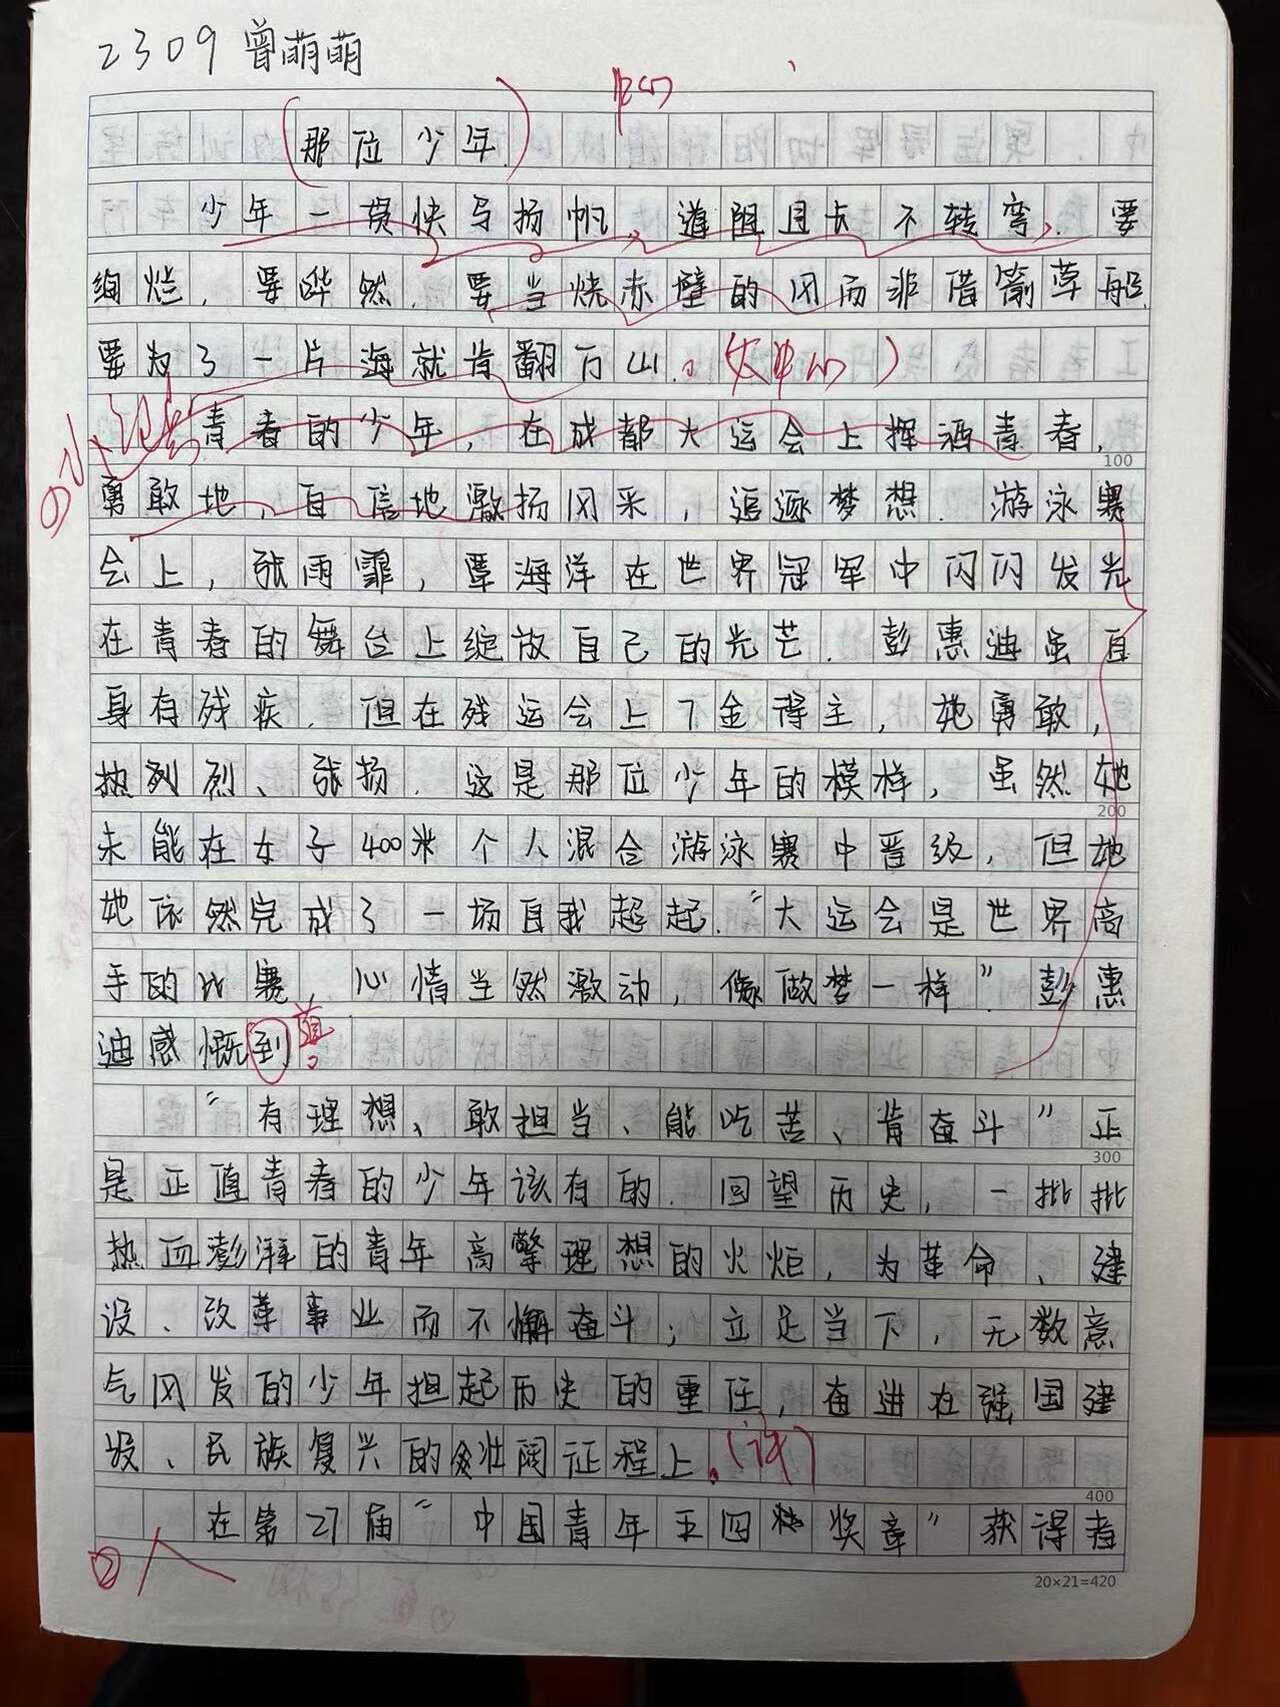 2309 曾萌萌
中心
那位少年
少年一贯快马扬帆,道阻且长不转弯,要
绚烂,要哗然,要当烧赤壁的风而非借箭草船
要为了一片海就肯翻万山。(中心)
青春的少年,在成都大运会上挥洒青春,
勇敢地、自信地激扬风采,追逐梦想.游泳赛
会上,张雨霏,覃海洋在世界冠军中闪闪发光
在青春的舞台上绽放自己的光芒.彭惠迪虽自
身有残疾,但在残运会上7金得主,她勇敢,
热列烈、张扬.这是那位少年的模样,虽然她
未能在女子400米个人混合游泳赛中晋级,但她
她依然完成了一场自我超起."大运会是世界高
手的比赛,心情当然激动,像做梦一样".彭惠
迪感慨到道:
"有理想、敢担当、能吃苦、肯奋斗"正
是正值青春的少年该有的.回望历史,一批批
热血澎湃的青年高擎理想的火炬,为革命、建
设、改革事业而不懈奋斗;立足当下,无数意
气风发的少年担起历史的重任,奋进在强国建
设、民族复兴的壮阔征程上.(议)
在第27届"中国青年五四奖章"获得者
②人
100
200
300
400
20×21=420